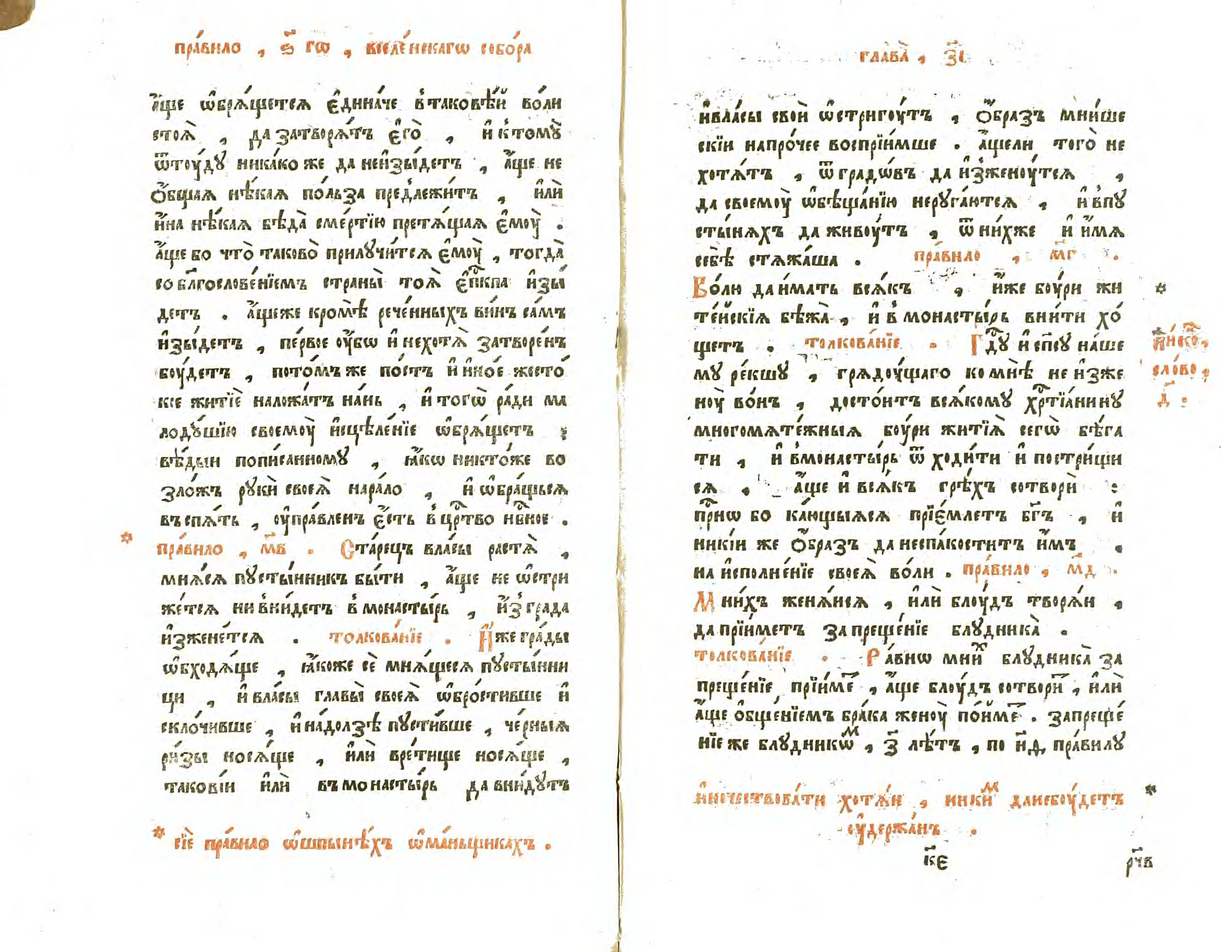 пра́вило , ѕ҃ гѡ , вселе́нскагѡ собо́ра
а҆́ще ѡ҆бря́щется є҆ди́наче в̾ такове́й во́ли
стоя̀ , да затворя́тъ є҆го̀ , и҆ к̾тому̀
ѿтꙋ́дꙋ ника́ко же да неизы́детъ , а҆́ще не
ѻ҆́бщая нѣ́кая по́льза предлежи́тъ , и҆лѝ
и҆́на нѣ́кая бѣда̀ сме́ртїю претя́щая є҆моу̀ .
а҆́ще бо что̀ таково̀ прилꙋчи́тся є҆моу̀ , тогда̀
со бл҃гослове́нїемъ страны̀ тоя̀ є҆пⷭ҇кпа и҆зы́
детъ . а҆́ще же кромѣ̀ рече́нныхъ ви́нъ са́мъ
и҆зы́детъ , пе́рвое ᲂу҆́бѡ и҆ нехотя̀ затворе́нъ
бꙋ́детъ , пото́мъ же по́стъ и҆ и҆но́е жесто́
кїе житїѐ наложа́тъ на́нь , и҆ тогѡ̀ ра́ди ма
лодꙋ́шїю своемꙋ̀ и҆сцѣле́нїе ѡ҆бря́щетъ ;
вѣ́дыи попи́санномꙋ , ꙗ҆́кѡ никто́же во
зло́жъ рꙋ́ки своея̀ нара́ло , и҆ ѡ҆бра́щься
въспя́ть , ᲂу҆пра́вленъ є҆́сть в̾ црⷭ҇тво нбⷭ҇ное .
* пра́вило , м҃в . Ста́рецъ власы̀ растя̀ ,
мня́ся пꙋсты́нникъ бы́ти , а҆́ще не ѡ҆стри
же́тся ни вни́детъ в̾ монасты́рь , и҆з̾ гра́да
и҆зжене́тся . толкова́нїе . И҆́же гра́ды
ѡ҆бходя́ще , ꙗ҆́коже сѐ мня́щеся пꙋсты́нни
цы , и҆ власы̀ главы̀ своея̀ ѡ҆бро́стивше и҆
склочи́вше , и҆ надо́лзѣ пꙋсти́вше , че́рныя
ри́зы нося́ще , и҆лѝ вре́тище нося́ще ,
такові́и и҆лѝ въ монасты́рь да вни́дꙋтъ
* сїѐ пра́вило ѡ҆ шпынѣ́хъ ѡ҆ ма́ньщикахъ .
глава̀ , з҃і
и҆ власы̀ своѝ ѡ҆стригꙋ́тъ , ѻ҆́бразъ мни́ше
скїи напро́чее воспрїи́мше . а҆́щели того̀ не
хотя́тъ , ѿ градѡ́въ да и҆зженꙋ́тся ,
да своемꙋ̀ ѡ҆бѣща́нїю нерꙋга́ются , и҆ в̾пꙋ
сты́няхъ да живꙋ́тъ , ѿ ни́хже и҆ и҆́мя
себѣ̀ стяжа́ша . пра́вило , м҃г .
Во́лю да и҆́мать вся́къ , и҆́же бꙋ́ри жи
те́йскїя бѣжа̀ , и҆ в̾ монасты́рь вни́ти хо́
щетъ . толкова́нїе . Гдⷭ҇ꙋ и҆ спⷭ҇ꙋ на́ше
мꙋ ре́кшꙋ , грядꙋ́щаго ко мнѣ̀ не и҆зже
нꙋ̀ во́нъ , досто́итъ вся́комꙋ хрⷭ҇тїа́нинꙋ
многомяте́жныя бꙋ́ри житїя̀ сегѡ̀ бѣ́га
ти , и҆ в̾монасты́рь ѿходи́ти и҆ постри́щи
ся , а҆́ще и҆ вся́къ грѣ́хъ сотворѝ :
при́сⷭ҇нѡ бо ка́ющыяся прїе́млетъ бг҃ъ , и҆
ники́и же ѻ҆́бразъ да неспа́коститъ и҆̀мъ ,
на и҆сполне́нїе своея̀ во́ли . пра́вило , м҃д .
Мни́хъ женя́ися , и҆лѝ блꙋ́дъ творя́и ,
да прїи́метъ запреще́нїе блꙋдника̀ .
толкова́нїе . Ра́внѡ мни́х блꙋдника̀ за
преще́нїе прїи́мет , а҆́ще блꙋ́дъ сотвори́т , и҆лѝ
а҆́ще ѻ҆бще́нїемъ бра́ка женꙋ̀ по́имет . запреще́
нїе же блꙋдникѡ́м , з҃ лѣ́тъ , по н҃ѳ , пра́вилꙋ
* и҆́ночествовати хотя́и , ники́м да небꙋ́детъ
ᲂу҆держа́нъ .
*
сло́во ,
д҃ .
к҃є
рч҃в